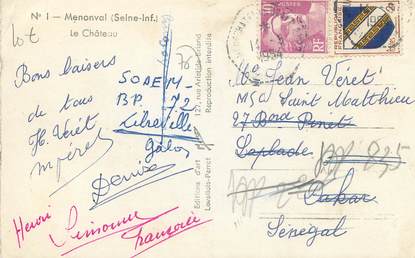 N° 1 - Menonval (Seine-Inf.)
Le Château
Bons baisers
de tous
H. Véret
Denise
Henri
Simonne
Françoise
SODEM
BP 72
Libreville
Gabon
Editions d'art
Lavallois-Perret
127, rue Aristide-Briand
Reproduction interdite
10F
RF
Mr Jean Véret
MSC Saint Matthieu
27 Bord Pinet
Laplade
BP 835
Dakar
Sénégal